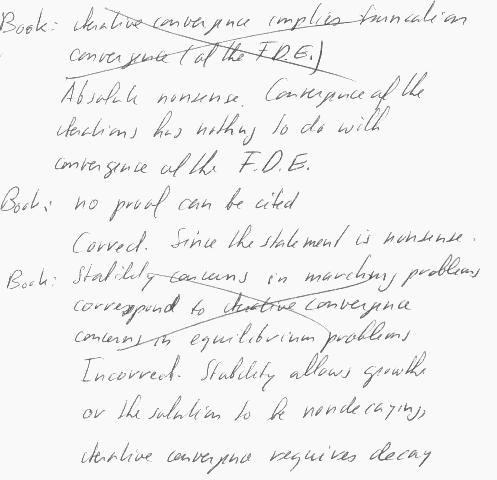 Book: iterative convergence implies truncation
convergence (of the F.D.E.)
Absolute nonsense. Convergence of the
iterations has nothing to do with
convergence of the F.D.E.
Book: no proof can be cited
Correct. Since the statement is nonsense.
Book: Stability concerns in marching problems
correspond to iterative convergence
concerns in equilibrium problems
Incorrect. Stability allows growth
or the solution to be nondecaying,
iterative convergence requires decay